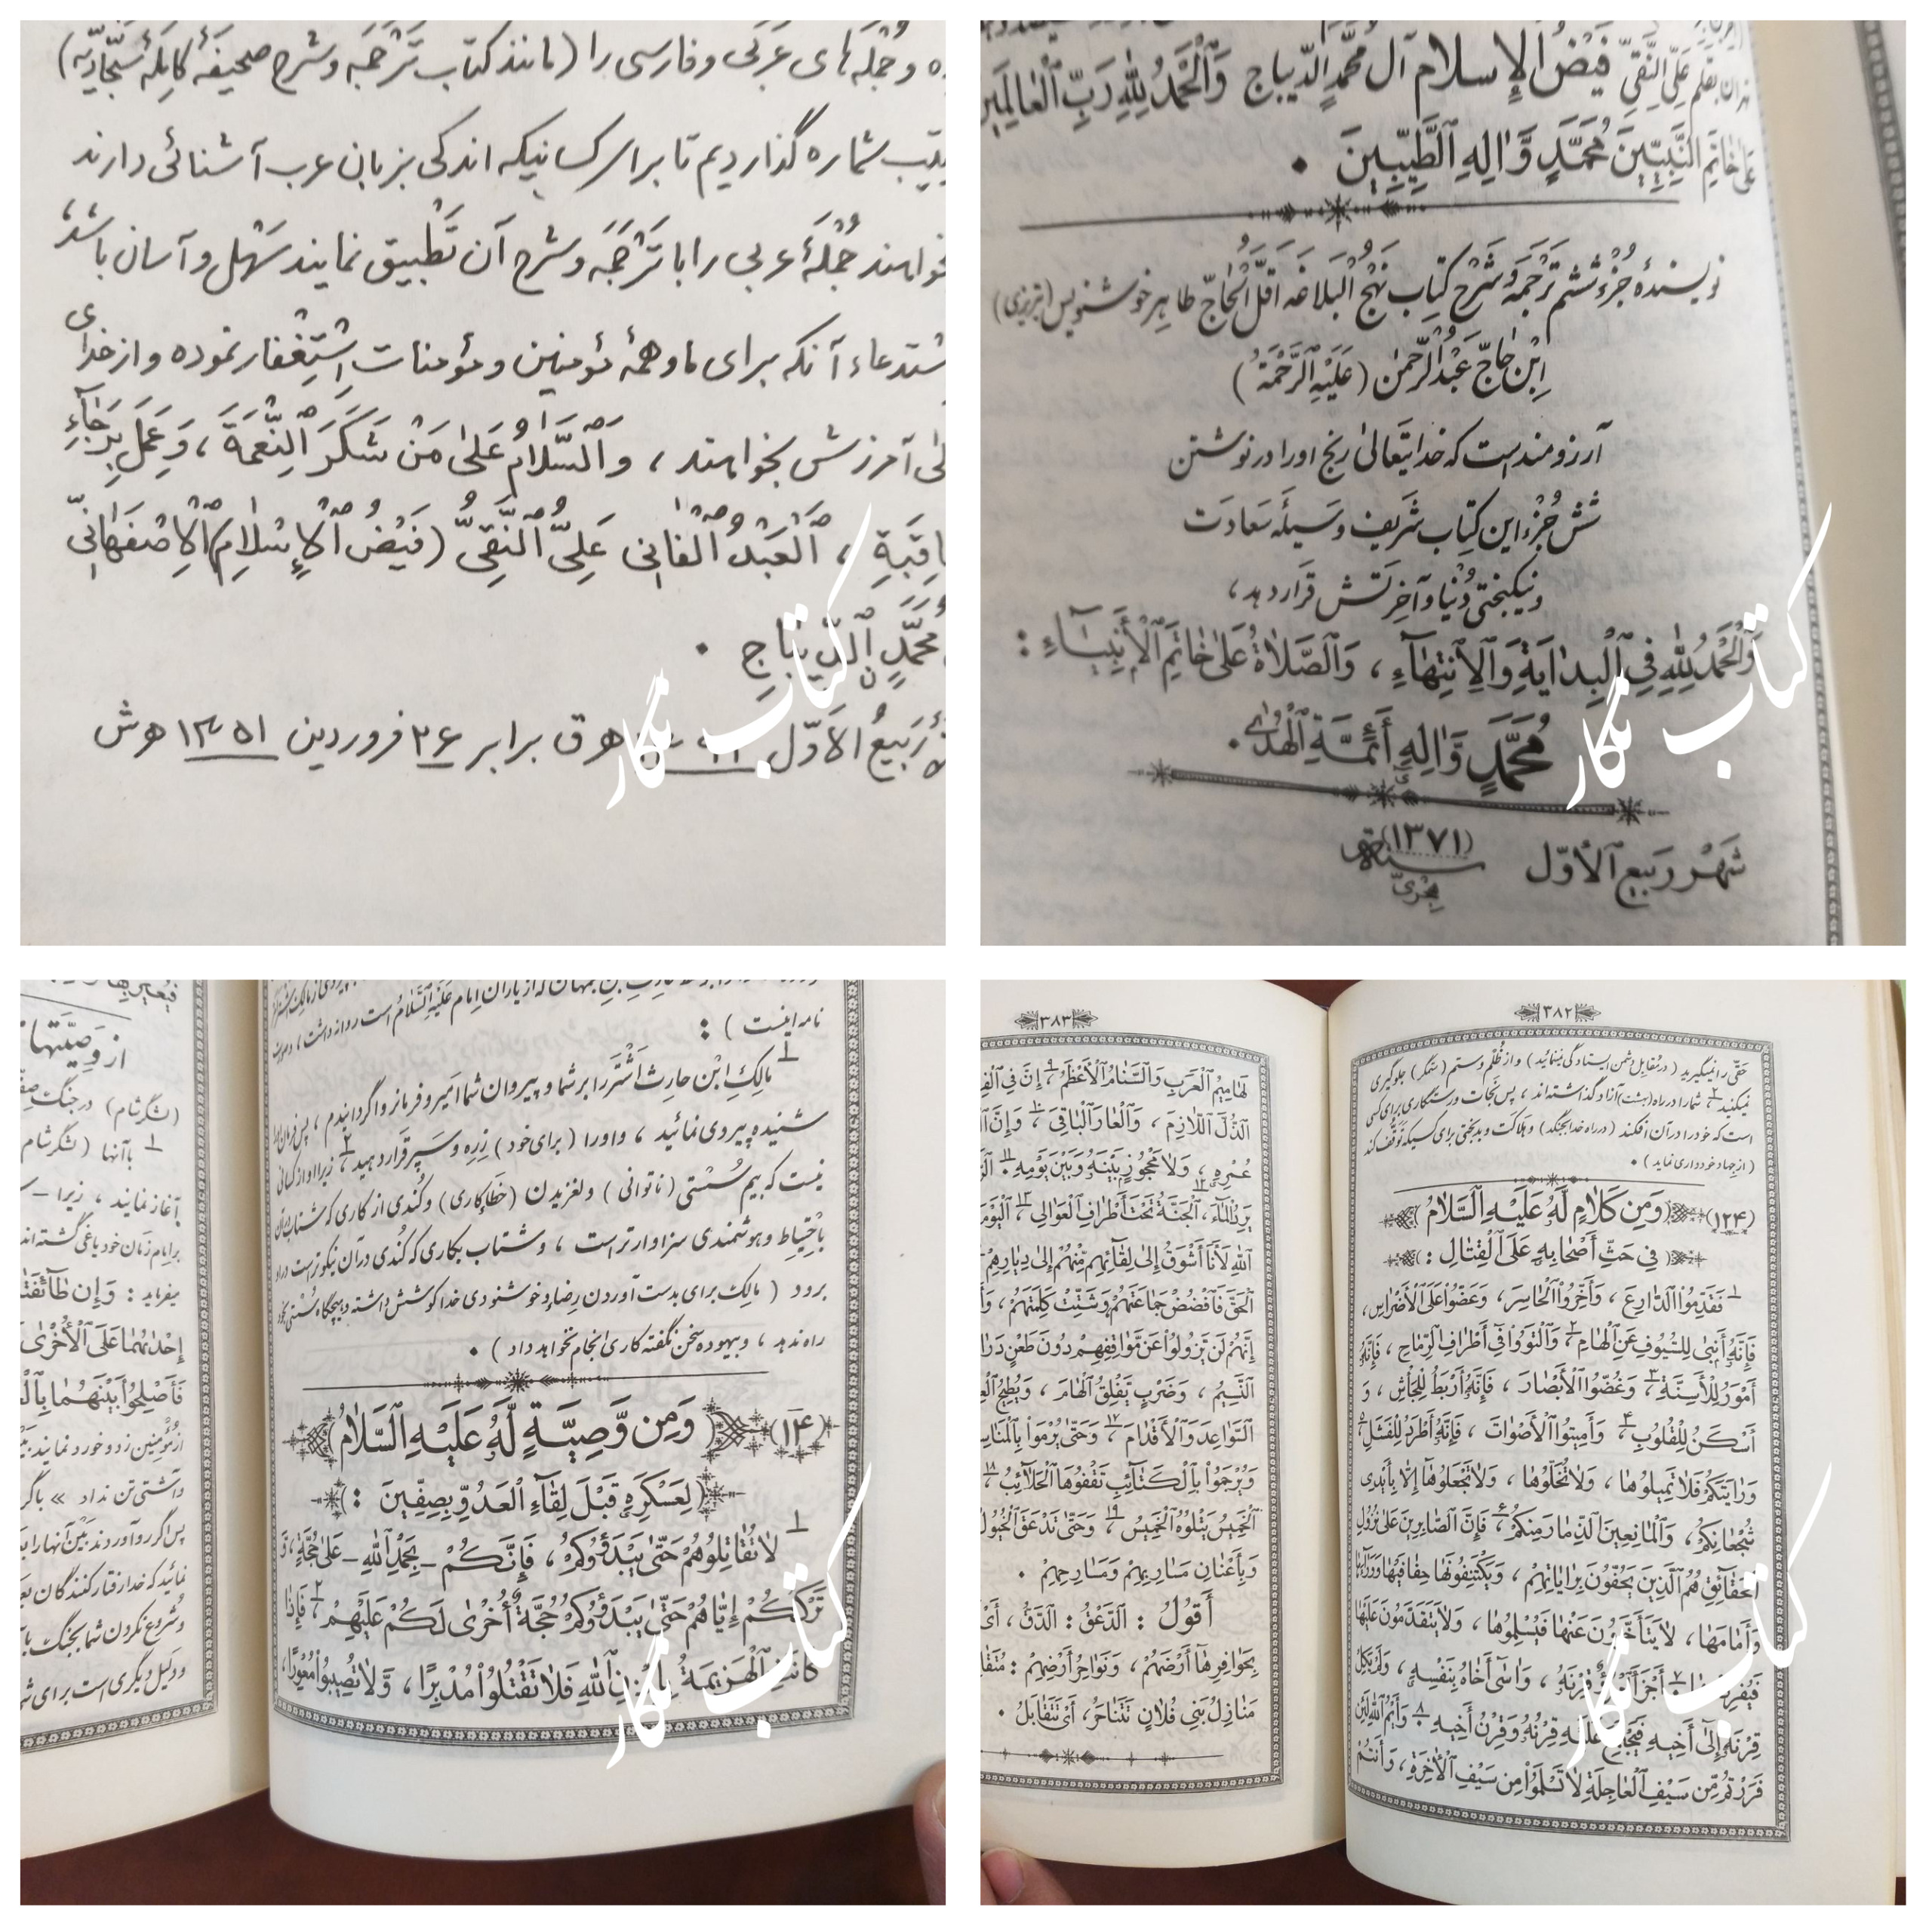 و جُمْلَه های عَرَبی و فارسی را (مانند کتاب تَرْجَمَه و شرح صحیفهٔ کامِلَهٔ سَجّادِیّه)
شماره گذاردیم تا برای کسانیکه اندکی بزبان عرب آشنائی دارند
جُمْلَهٔ عربی را با تَرْجَمَه و شرح آن تَطْبیق نمایند سَهْل و آسان باشد،
آنکه برای ما و همهٔ مؤمنین و مؤمنات اِسْتِغْفار نموده و از خدای
آمرزش بخواهند، وَ ٱلسَّلامُ عَلیٰ مَنْ شَکَرَ ٱلنِّعْمَةَ، وَ عَمِلَ بِرَجٰآءِ
، ٱلْعَبْدُ ٱلْفٰانی عَلِیُّ ٱلنَّقِیُّ (فَیْضُ ٱلْإِسْلامِ) ٱلْإِصْفَهٰانِیُّ
مُحَمَّدٍ ٱلدّیبٰاجِ .
رَبیعُ الأَوّل هـ ق برابر ۲۶ فروردین ۱۳۵۱ هـ ش
بقلم عَلِیّ النَّقِیّ فَیْضُ الإسلام آل مُحَمَّدٍ الدّیباج وَٱلْحَمْدُ لِلّٰهِ رَبِّ ٱلْعٰالَمینَ
عَلیٰ خٰاتَمِ النَّبِیّینَ مُحَمَّدٍ وَّ اٰلِهِ ٱلطَّیِّبینَ .
نویسندهٔ جُزْءِ ششم تَرْجَمَه و شَرْح کِتاب نَهْجُ ٱلْبَلاغَه اَقَلُّ ٱلْحٰاجّ طاهِر خوشنویس (تبریزی)
اِبْن حٰاجّ عَبْدُ ٱلرَّحْمٰن (عَلَیْهِ ٱلرَّحْمَةُ)
آرزومند است که خدایتَعالیٰ رنج او را در نوشتن
شش جُزْء این کِتاب شَریف وَسیلَه سَعادَت
و نیکبختی دُنْیا و آخِرَتش قَرار دهد،
وَٱلْحَمْدُ لِلّٰهِ فِی ٱلْبِدٰایَةِ وَ ٱلْاِنْتِهٰآءِ، وَ ٱلصَّلاٰةُ عَلیٰ خٰاتَمِ ٱلْأَنْبِیٰـآءِ :
مُحَمَّدٍ وَّ اٰلِهِ أَئِمَّةِ ٱلْهُدیٰ .
شَهْرُ رَبیع ٱلأَوّل سنه (۱۳۷۱) هجریّ
نامه اینست) :
۱ مالِکِ ابْن حارِث اَشْتَر را بر شما و پیروان شما امیر و فرمانروا گردانیدم،
شنیده پیروی نمائید، و او را (برای خود) زِرِه و سپر قرار دهید ۲، زیرا او از کسانی
نیست که بیم سُستی (ناتوانی) و لغزیدن (خَطاءکاری) و کُندی از کاری که شتاب
باحْتِیاط و هوشمندی سزاوارتر است، و شتاب بکاری که کُندی در آن نیکوتر است
برود (مالِک برای بدست آوردن رِضاء و خوشنودی خدا کوشش داشته و هیچگاه سُستی
راه ندهد، و بیهوده سخن نگفته کاری انجام نخواهد داد) .
(۱۴) وَمِن وَّصِیَّةٍ لَّهُ عَلَیْهِ ٱلسَّلاٰمُ
لِعَسْکَرِهِ قَبْلَ لِقٰآءِ ٱلْعَدُوِّ بِصِفّینَ :
۱ لاٰ تُقٰاتِلُوهُمْ حَتّیٰ یَبْدَؤُوکُمْ، فَإِنَّکُمْ - بِحَمْدِ ٱللّٰهِ - عَلیٰ حُجَّةٍ، وَ
تَرْکُکُمْ إِیّٰاهُمْ حَتّیٰ یَبْدَؤُوکُمْ حُجَّةٌ أُخْریٰ لَکُمْ عَلَیْهِمْ ۲، فَإِذٰا
کٰانَتِ ٱلْهَزیمَةُ بِإِذْنِ ٱللّٰهِ فَلاٰ تَقْتُلُوا مُدْبِرًا، وَّ لاٰ تُصیبُوا مُعْوِرًا،
از وصیّتها
(لشگر شام) در جنگ صفّین
۱ با آنها (لشگر شام
آغاز نمایند، زیرا
بر امام زمان خود یاغی گشته اند
میفرماید : وَإِن طٰآئِفَتٰ
إِحْدٰیهُمٰا عَلَی ٱلْأُخْریٰ
فَأَصْلِحُوا بَیْنَهُمٰا
۳۸۲
حقّی را نمیگیرید (در مقابِل دشمن ایستادگی نمینمائید) و از ظُلْم و ستم (ستمگر) جلوگیری
نمیکنید ۸، شما را در راه (بهشت) آزاد گذاشته اند، پس نَجات و رستگاری برای کسی
است که خود را در آن افکند (در راه خدا بجنگد) و هلاکت و بدبختی برای کسیکه توقّف کند
(از جهاد خودداری نماید) .
(۱۲۴) وَمِن کَلاٰمٍ لَّهُ عَلَیْهِ ٱلسَّلاٰمُ
فی حَثِّ أَصْحٰابِهِ عَلَی ٱلْقِتٰالِ :
۱ فَقَدِّمُوا ٱلدّٰارِعَ، وَأَخِّرُوا ٱلْحٰاسِرَ، وَعَضُّوا عَلَی ٱلْأَضْرٰاسِ،
فَإِنَّهُ أَنْبیٰ لِلسُّیُوفِ عَنِ ٱلْهٰامِ ۲، وَٱلْتَوُوا فی أَطْرٰافِ ٱلرِّمٰاحِ، فَإِنَّهُ
أَمْوَرُ لِلْأَسِنَّةِ ۳، وَغُضُّوا ٱلْأَبْصٰارَ، فَإِنَّهُ أَرْبَطُ لِلْجَأْشِ، وَ
أَسْکَنُ لِلْقُلُوبِ ۴، وَأَمیتُوا ٱلْأَصْوٰاتَ، فَإِنَّهُ أَطْرَدُ لِلْفَشَلِ ۵
وَرٰایَتَکُمْ فَلاٰ تُمیلُوهٰا، وَلاٰ تُخَلُّوهٰا، وَلاٰ تَجْعَلُوهٰا إِلّٰا بِأَیْدی
شُجْعٰانِکُمْ، وَٱلْمٰانِعینَ ٱلذِّمٰارَ مِنکُمْ ۶، فَإِنَّ ٱلصّٰابِرینَ عَلیٰ نُزُولِ
ٱلْحَقٰآئِقِ هُمُ ٱلَّذینَ یَحُفُّونَ بِرٰایٰاتِهِمْ، وَیَکْتَنِفُونَهٰا حِفٰافَیْهٰا وَوَرٰآءَهٰا
وَأَمٰامَهٰا، لاٰ یَتَأَخَّرُونَ عَنْهٰا فَیُسْلِمُوهٰا، وَلاٰ یَتَقَدَّمُونَ عَلَیْهٰا
فَیُفْرِدُوهٰا ۷ أَجْزَأَ ٱمْرُؤٌ قِرْنَهُ، وَاٰسیٰ أَخٰاهُ بِنَفْسِهِ، وَلَمْ یَکِلْ
قِرْنَهُ إِلیٰ أَخیهِ فَیَجْتَمِعَ عَلَیْهِ قِرْنُهُ وَقِرْنُ أَخیهِ ۸ وَأَیْمُ ٱللّٰهِ لَئِن
فَرَرْتُم مِّن سَیْفِ ٱلْعٰاجِلَةِ لاٰ تَسْلَمُوا مِن سَیْفِ ٱلْاٰخِرَةِ، وَأَنتُمْ
۳۸۳
لَهٰامیمُ ٱلْعَرَبِ وَٱلسَّنٰامُ ٱلْأَعْظَمُ ۹، إِنَّ فِی
ٱلذُّلَّ ٱللّٰازِمَ، وَٱلْعٰارَ ٱلْبٰاقِیَ ۱۰، وَإِنَّ
عُمُرِهِ، وَلاٰ مَحْجُوزٍ بَیْنَهُ وَبَیْنَ یَوْمِهِ ۱۱
ٱلْجَنَّةُ تَحْتَ أَطْرٰافِ ٱلْعَوٰالی ۱۳، ٱلْیَوْمَ
ٱللّٰهِ لَأَنَا أَشْوَقُ إِلیٰ لِقٰآئِهِم مِّنْهُمْ إِلیٰ دِیٰارِهِمْ
ٱلْحَقَّ فَٱفْضُضْ جَمٰاعَتَهُمْ وَشَتِّتْ کَلِمَتَهُمْ،
إِنَّهُمْ لَن یَزُولُوا عَن مَّوٰاقِفِهِمْ دُونَ طَعْنٍ
ٱلنَّسیمُ، وَضَرْبٍ یَفْلِقُ ٱلْهٰامَ، وَیُطیحُ
ٱلسَّوٰاعِدَ وَٱلْأَقْدٰامَ ۱۷، وَحَتّیٰ یُرْمَوْا بِٱلْمَنٰاسِرِ
وَیُرْجَمُوا بِٱلْکَتٰآئِبِ تَقْفُوهَا ٱلْحَلاٰئِبُ ۱۸
ٱلْخَمیسُ یَتْلُوهُ ٱلْخَمیسُ ۱۹، وَحَتّیٰ تَدْعَقَ ٱلْخُیُولُ
وَبِأَعْنٰانِ مَسٰارِبِهِمْ وَمَسٰارِحِهِمْ .
أَقُولُ : اَلدَّعْقُ : اَلدَّقُّ، أَیْ
بِحَوٰافِرِهٰا أَرْضَهُمْ، وَنَوٰاحِرُ أَرْضِهِمْ :
مَنٰازِلُ بَنی فُلاٰنٍ تَتَنٰاحَرُ، أَیْ تَتَقٰابَلُ .
کتاب نگار
کتاب نگار
کتاب نگار
کتاب نگار